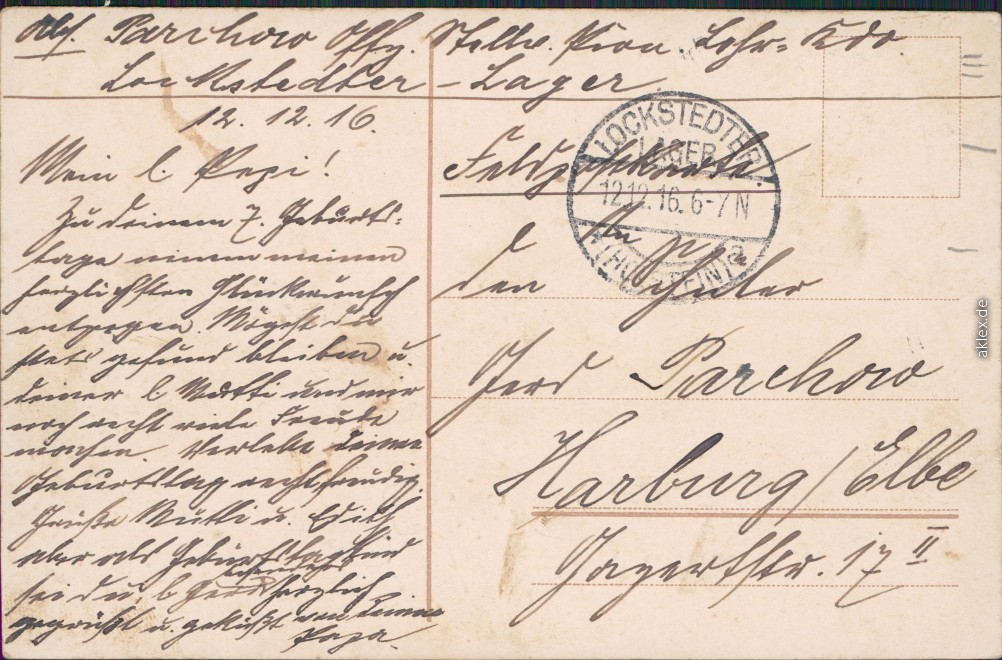 Abs. Parchow Offz. Stellv. Pion. Lehr-Kdo.
Lockstedter-Lager
12.12.16.
Mein l. Pepi!
Zu deinem 7. Geburts-
tage nimm meinen
herzlichsten Glückwunsch
entgegen. Mögest du
stets gesund bleiben u.
deiner l. Mutti und mir
noch recht viele Freude
machen. Verlebe deinen
Geburtstag recht freudig.
Grüße Mutti u.
aber als Geburtstagskind
sei du, l. herzlich
gegrüßt u. geküßt von deinem
Papa.
Feldpostkarte
An
den Schüler
Gerd Parchow
Harburg/Elbe
Jägerstr. 17 II
LOCKSTEDTER
LAGER
12.12.16. 6-7 N
(HOLSTEIN)
aklex.de